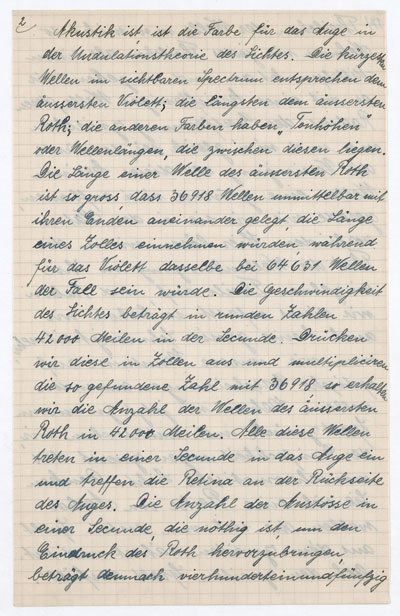 2
Akustik ist ist die Farbe für das Auge in
der Undulationstheorie des Lichtes. Die kürzesten
Wellen im sichtbaren Spectrum entsprechen dem
äussersten Violett; die längsten dem äussersten
Roth; die anderen Farben haben „Tonhöhen"
oder Wellenlängen, die zwischen diesen liegen.
Die Länge einer Welle des äussersten Roth
ist so gross, dass 36918 Wellen unmittelbar mit
ihren Enden aneinander gelegt, die Länge
eines Zolles einnehmen würden, während
für das Violett dasselbe bei 64631 Wellen
der Fall sein würde. Die Geschwindigkeit
des Lichtes beträgt in runden Zahlen
42000 Meilen in der Secunde. Drücken
wir diese in Zollen aus und multipliciren
die so gefundene Zahl mit 36918, so erhalten
wir die Anzahl der Wellen des äussersten
Roth in 42000 Meilen. Alle diese Wellen
treten in einer Secunde in das Auge ein
und treffen die Retina an der Rückseite
des Auges. Die Anzahl der Anstösse in
einer Secunde, die nöthig ist, um den
Eindruck des Roth hervorzubringen,
beträgt demnach vierhunderteinundfünfzig